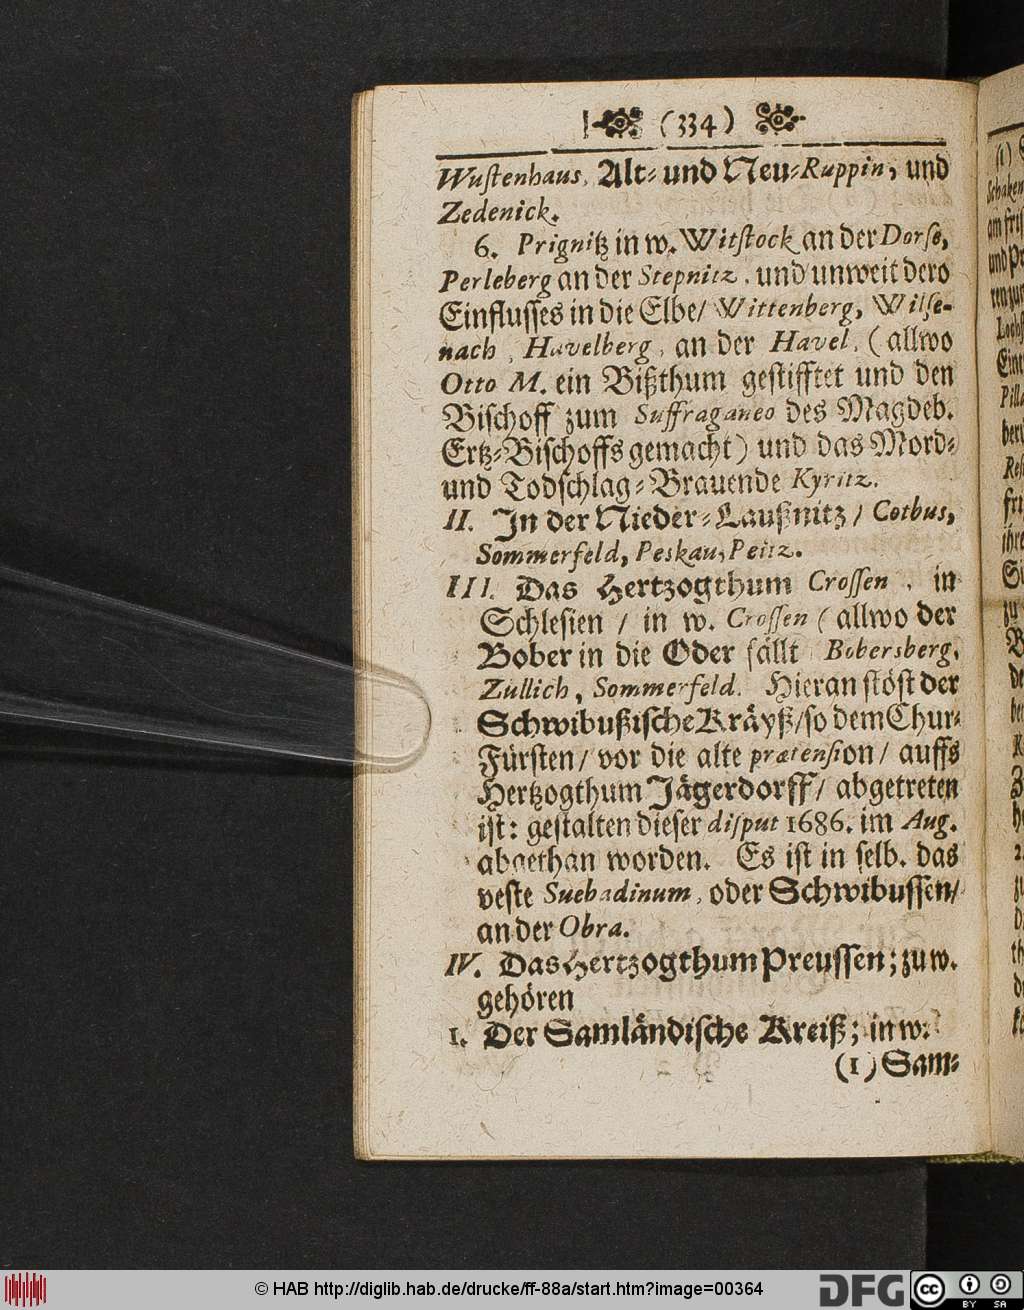 (334)
Wustenhaus, Alt- und Neu-Ruppin, und
Zedenick.
6. Prignitz in w. Witstock an der Dorse,
Perleberg an der Stepnitz, und unweit dero
Einflusses in die Elbe/ Wittenberg, Wilse-
nach, Havelberg, an der Havel, (allwo
Otto M. ein Bißthum gestifftet und den
Bischoff zum Suffraganeo des Magdeb.
Ertz-Bischoffs gemacht) und das Mord-
und Todschlag-Brauende Kyritz.
II. In der Nieder-Laußnitz/ Cotbus,
Sommerfeld, Peskau, Peitz.
III. Das Hertzogthum Crossen, in
Schlesien / in w. Crossen (allwo der
Bober in die Oder fällt Bobersberg,
Zullich, Sommerfeld. Hieran stöst der
Schwibußische Kräyß/ so dem Chur-
Fürsten/ vor die alte prætension/ auffs
Hertzogthum Jägerdorff/ abgetreten
ist: gestalten dieser disput 1686. im Aug.
abgethan worden. Es ist in selb. das
veste Suebadinum, oder Schwibussen/
an der Obra.
IV. Das Hertzogthum Preussen; zu w.
gehören
1. Der Samländische Kreiß; in w.
(1) Sam-
© HAB http://diglib.hab.de/drucke/ff-88a/start.htm?image=00364
DFG
cc
BY SA